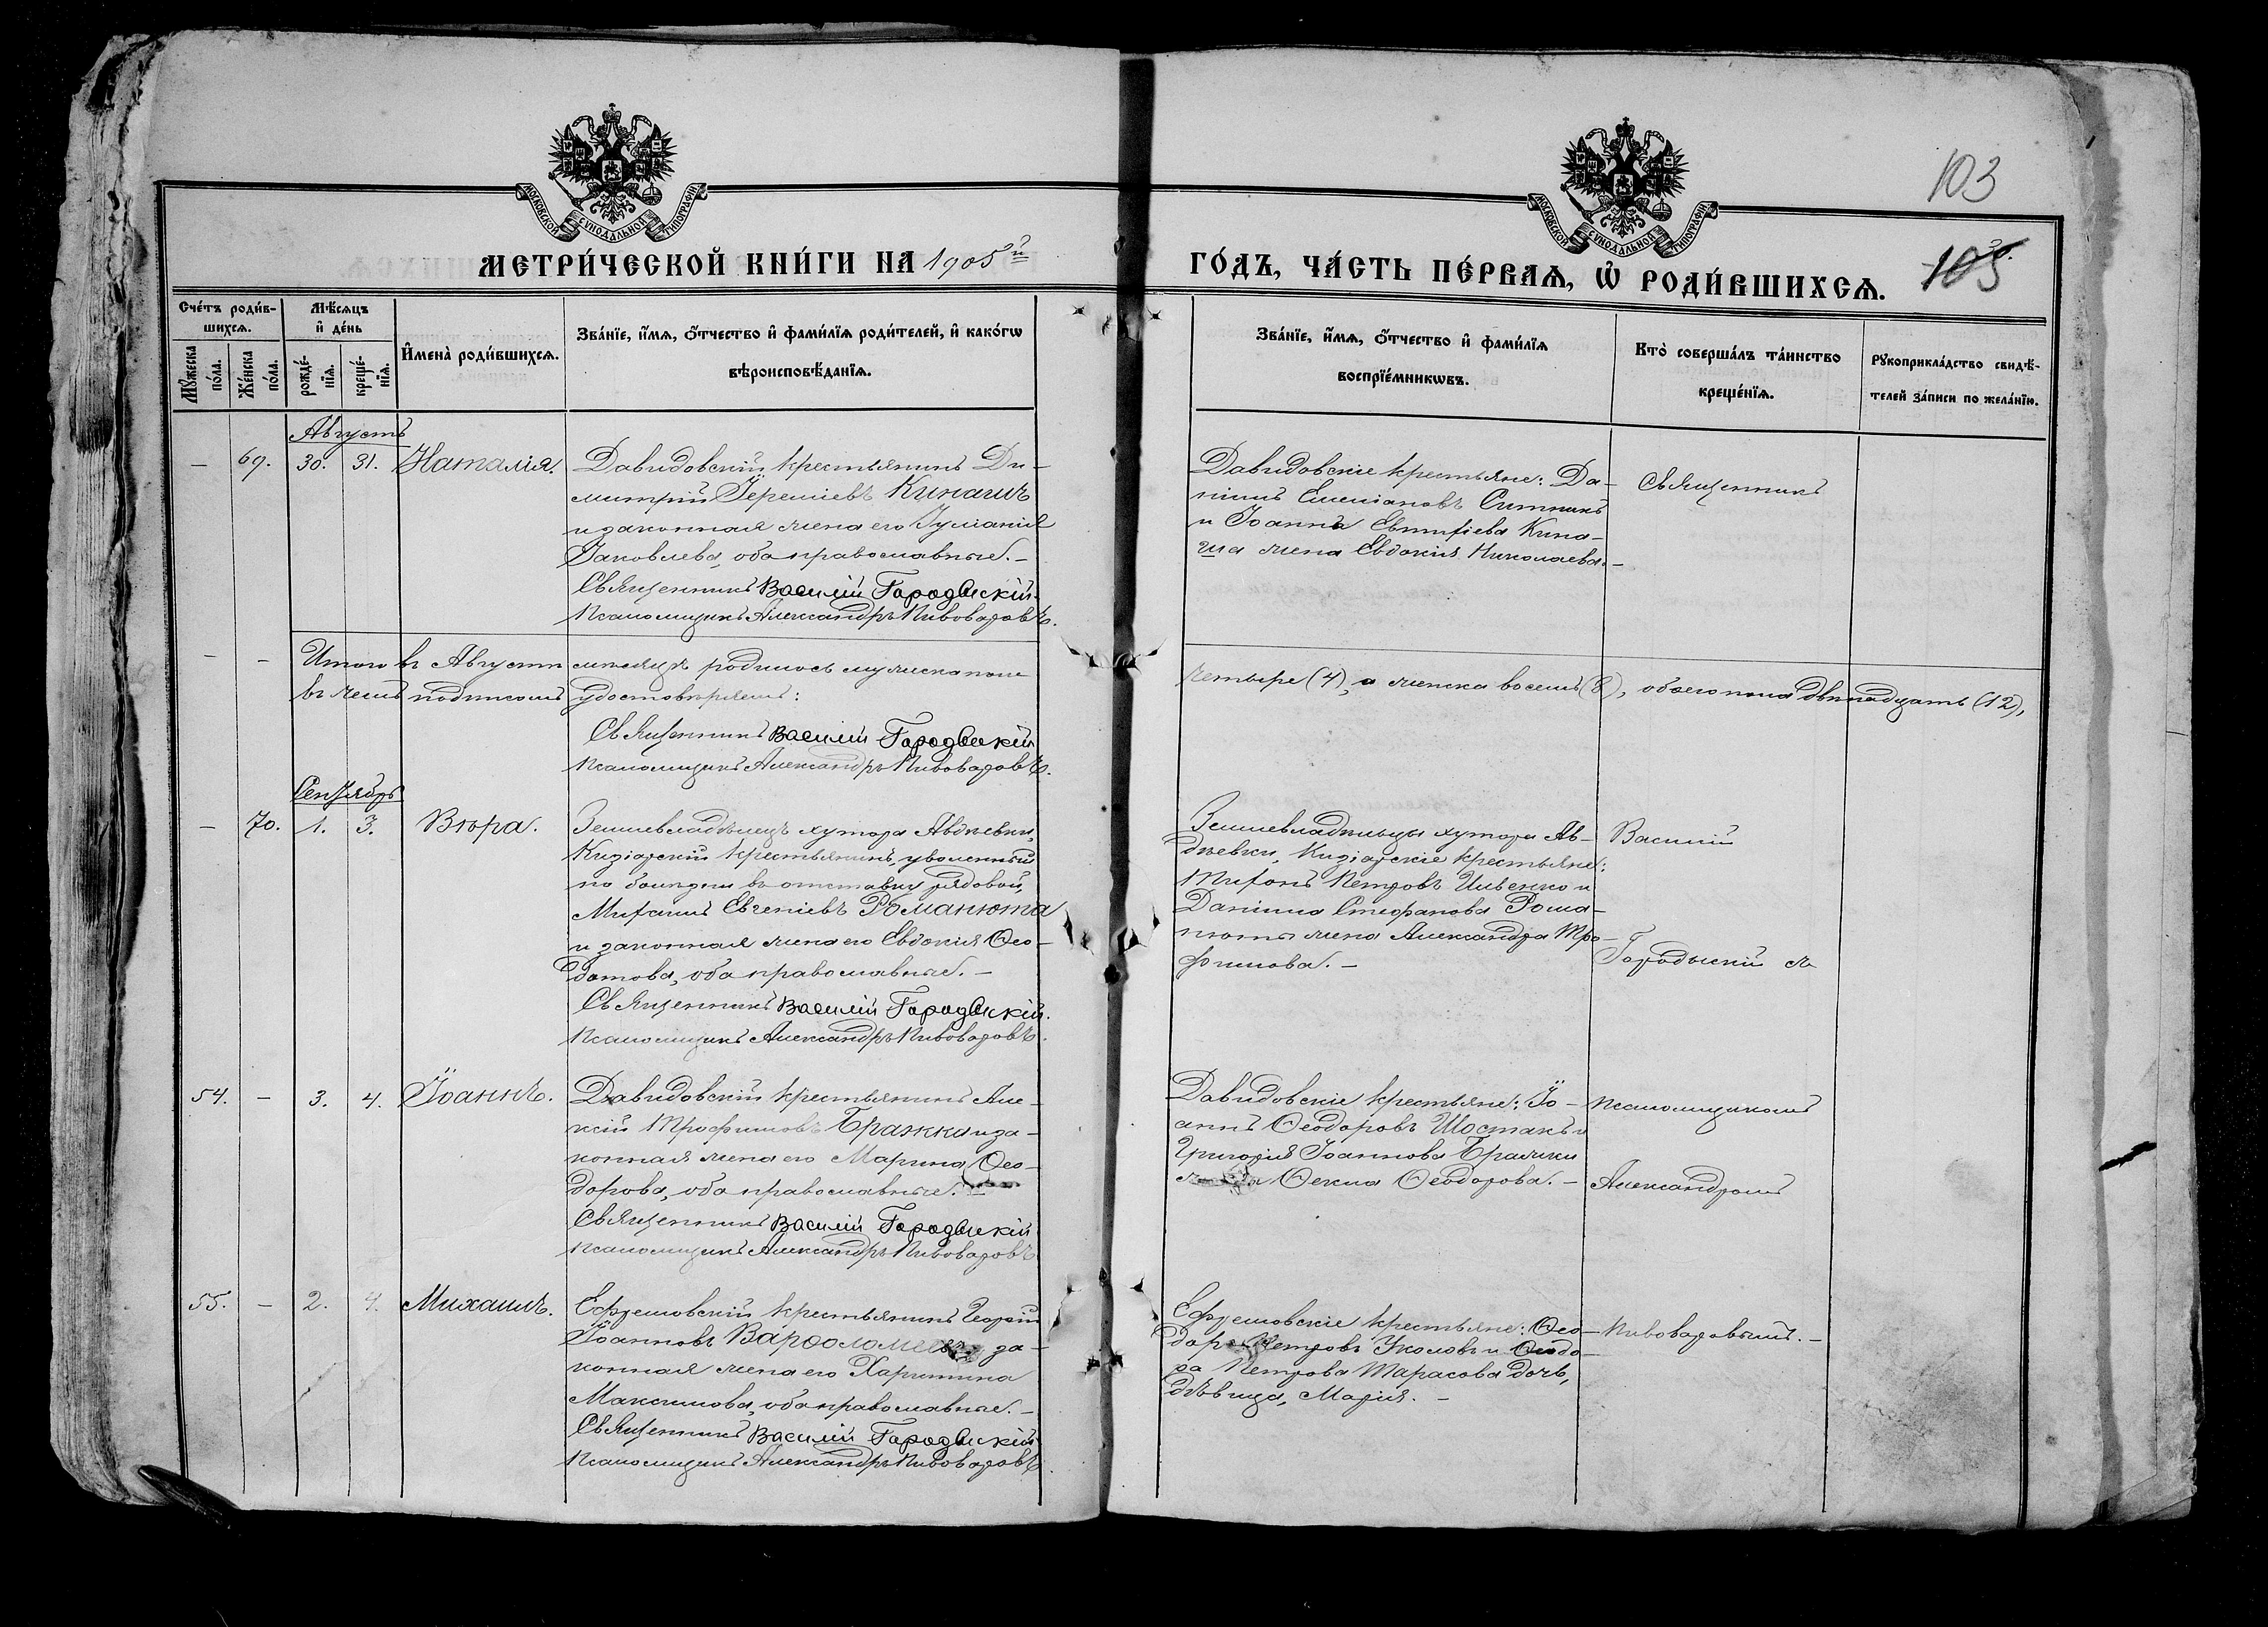 103
105
МОСКОВСКОЙ СУНОДАЛЬНОЙ ТИПОГРАФІИ
МОСКОВСКОЙ СУНОДАЛЬНОЙ ТИПОГРАФІИ
МЕТРИ́ЧЕСКОЙ КНИ́ГИ НА 1905й
ГО́ДЪ, ЧА́СТЬ ПЕ́РВАѦ, Ѡ РОДИ́ВШИХСѦ.
Сче́тъ роди́в-
шихсѧ.
Мꙋ́жеска по́ла.
Же́нска по́ла.
Мѣ́сѧцъ и де́нь
рожде́-нїѧ.
креще́-нїѧ.
Имена̀ роди́вшихсѧ.
Зва́нїе, и́мѧ, о́тчество и фами́лїѧ роди́телей, и како́гѡ
вѣроисповѣ́данїѧ.
Зва́нїе, и́мѧ, о́тчество и фами́лїѧ
воспрїе́мникѡвъ.
Кто̀ соверша́лъ та́инство
креще́нїѧ.
Рꙋкоприкла́дство свидѣ́-
телей за́писи по жела́нїю.
Августъ
— 69. 30. 31. Наталія.
Давидовскій крестьянинъ Ди-
митрій Іереміевъ Кинашъ
и законная жена его Іуліанія
Іаковлева, оба православные. —
Священникъ Василій Городыскій.
Псаломщикъ Александръ Пивоваровъ.
Давидовскіе крестьяне: Да-
ніилъ Емеліановъ Ситникъ
и Іоанна Евтихіева Кина-
ша жена Евдокія Николаева. —
Священникъ
— — Итого въ Августѣ мѣсяцѣ родилось мужеска пола
четыре (4), а женска восемь (8), обоего пола двѣнадцать (12),
въ чемъ подписомъ удостовѣряемъ:
Священникъ Василій Городыскій
Псаломщикъ Александръ Пивоваровъ.
Сентябрь
— 70. 1. 3. Вѣра.
Землевладѣлецъ хутора Авдѣевки,
крестьянинъ, уволенный
по болѣзни въ отставку рядовой,
Михаилъ Евгеніевъ Романюта
и законная жена его Евдокія Ѳео-
дотова, оба православные. —
Священникъ Василій Городыскій.
Псаломщикъ Александръ Пивоваровъ.
Землевладѣльцы хутора Ав-
дѣевки, крестьяне:
Тихонъ Петровъ Ильенко и
Даніила Стефанова Рома-
нюты жена Александра Тро-
фимова. —
Василій
Городыскій съ
54. — 3. 4. Іоаннъ.
Давидовскій крестьянинъ Але-
ксій Трофимовъ Бражка и за-
конная жена его Марина Ѳео-
дорова, оба православные. —
Священникъ Василій Городыскій
Псаломщикъ Александръ Пивоваровъ
Давидовскіе крестьяне: Іо-
аннъ Ѳеодоровъ Шостакъ и
Григорія Іоаннова Бражки
жена Ѳекла Ѳеодорова. —
псаломщикомъ
Александромъ
55. — 2. 4. Михаилъ.
Ефремовскій крестьянинъ Георгій
Іоанновъ за-
конная жена его Харитина
Максимова, оба православные. —
Священникъ Василій Городыскій
Псаломщикъ Александръ Пивоваровъ.
Ефремовскіе крестьяне: Ѳео-
доръ Петровъ Уколовъ и Ѳеодо-
ра Петрова Тарасова дочь,
дѣвица, Марія. —
Пивоваровымъ. —